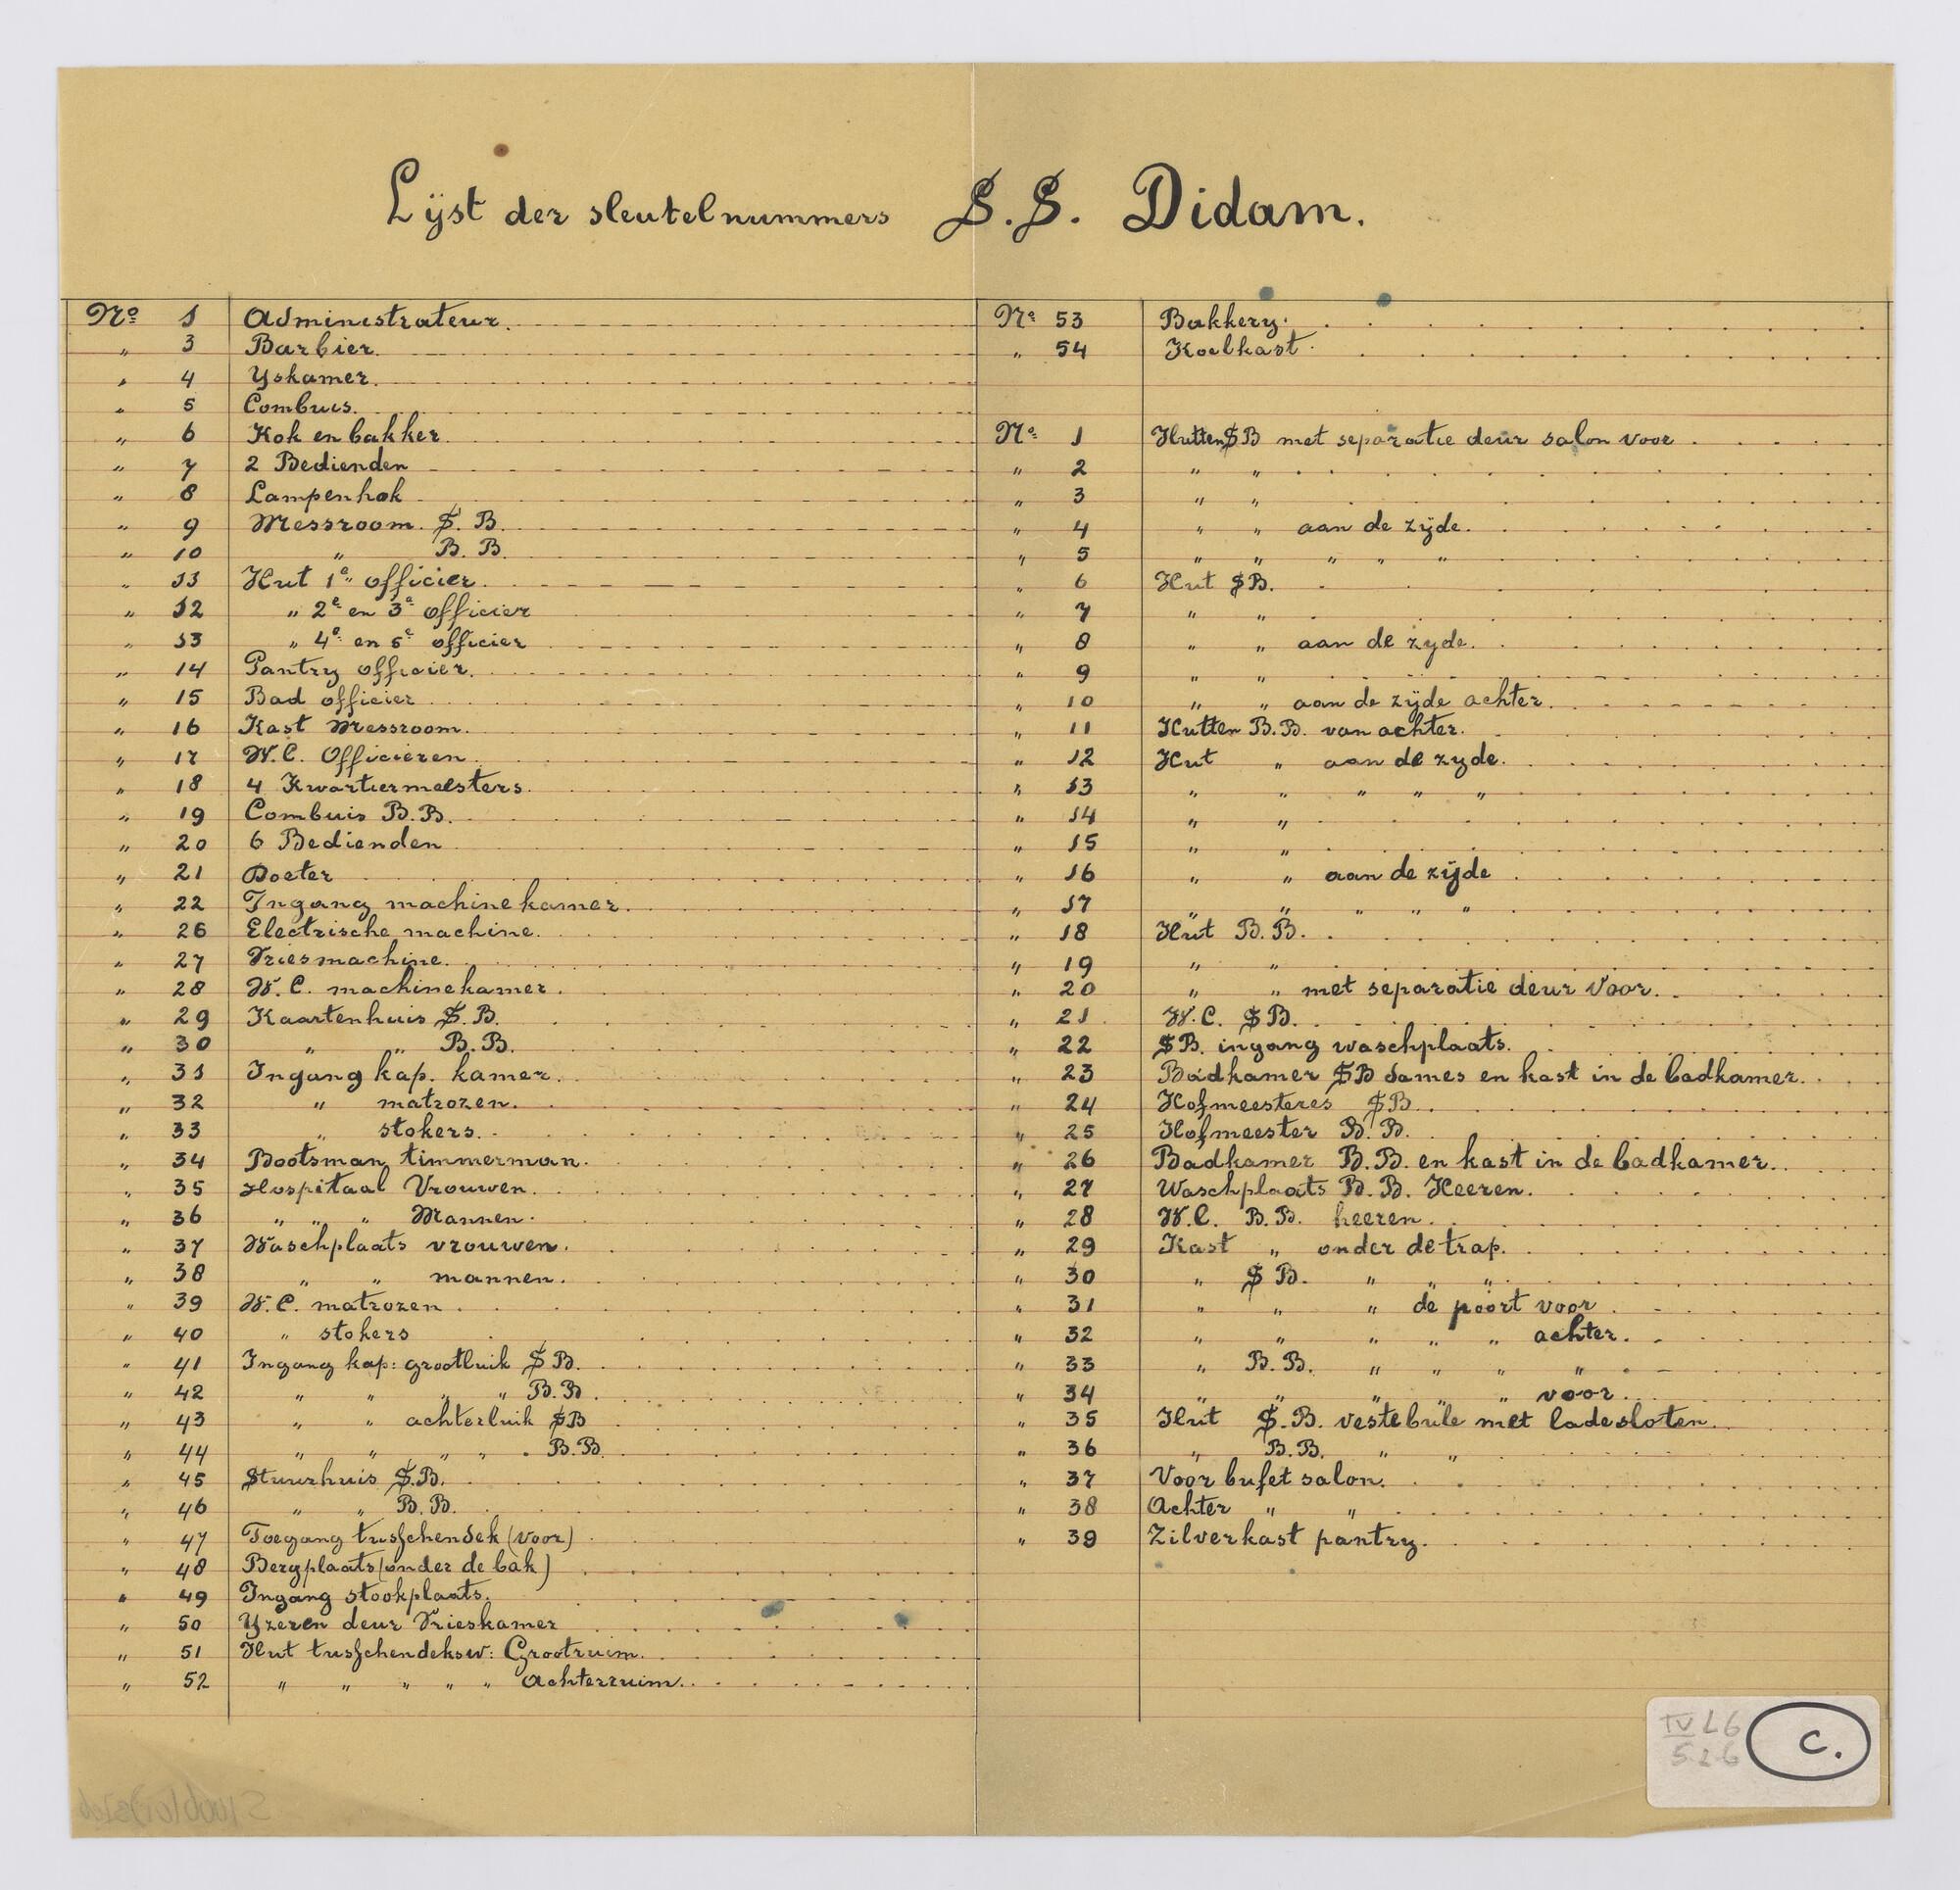 Lijst der sleutelnummers S.S. Didam.
No 1 Administrateur.
" 3 Barbier.
" 4 Yskamer.
" 5 Combuis.
" 6 Kok en bakker
" 7 2 Bedienden
" 8 Lampenhok
" 9 Messroom. S. B.
" 10 " B. B.
" 11 Hut 1e officier.
" 12 " 2e en 3e officier
" 13 " 4e en 5e officier
" 14 Pantry officier.
" 15 Bad officier
" 16 Kast Messroom.
" 17 W.C. Officieren
" 18 4 Kwartiermeesters.
" 19 Combuis B.B.
" 20 6 Bedienden
" 21 Docter
" 22 Ingang machinekamer.
" 26 Electrische machine.
" 27 Vriesmachine.
" 28 W.C. machinekamer.
" 29 Kaartenhuis S.B.
" 30 " " B.B.
" 31 Ingang kap. kamer.
" 32 " matrozen.
" 33 " stokers.
" 34 Bootsman timmerman.
" 35 Hospitaal Vrouwen.
" 36 " " " Mannen.
" 37 Waschplaats vrouwen.
" 38 " " mannen.
" 39 W.C. matrozen.
" 40 " stokers
" 41 Ingang kap: grootluik S B.
" 42 " " " " B.B.
" 43 " " achterluik S B
" 44 " " " " " B.B.
" 45 Stuurhuis S.B.
" 46 " " B.B.
" 47 Toegang tusschendek (voor)
" 48 Bergplaats (onder de bak)
" 49 Ingang stookplaats.
" 50 Yzeren deur Vrieskamer
" 51 Hut tusschendeksw: Grootruim.
" 52 " " " " " Achterruim.
No 53 Bakkery.
" 54 Koelkast.
No 1 Hutten S B met separatie deur salon voor
" 2 " "
" 3 " "
" 4 " " aan de zijde.
" 5 " " " " "
" 6 Hut S B.
" 7 " "
" 8 " " aan de zyde.
" 9 " "
" 10 " " aan de zijde achter.
" 11 Hutten B.B. van achter.
" 12 Hut " aan de zyde.
" 13 " " " " "
" 14 " "
" 15 " "
" 16 " " aan de zijde
" 17 " " " " "
" 18 Hut B.B.
" 19 " "
" 20 " " met separatie deur Voor.
" 21 W.C. S B.
" 22 S B. ingang waschplaats.
" 23 Badkamer S B dames en kast in de badkamer.
" 24 Hofmeesteres S B
" 25 Hofmeester B.B.
" 26 Badkamer B.B. en kast in de badkamer.
" 27 Waschplaats B.B. Heeren.
" 28 W.C. B.B. heeren.
" 29 Kast " onder de trap.
" 30 " S B. " " "
" 31 " " " de poort voor
" 32 " " " " " achter.
" 33 " B.B. " " " "
" 34 " " " " " voor.
" 35 Hut S.B. vestebule met ladesloten.
" 36 " B.B. " "
" 37 Voor bufet salon.
" 38 Achter " "
" 39 Zilverkast pantry.
IV L6
5 2 6
C.